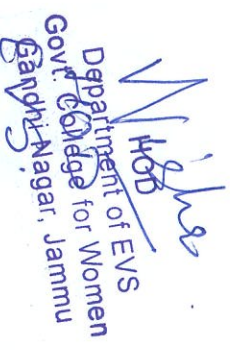 HOD
Department of EVS
Govt. College for Women
Gandhi Nagar, Jammu